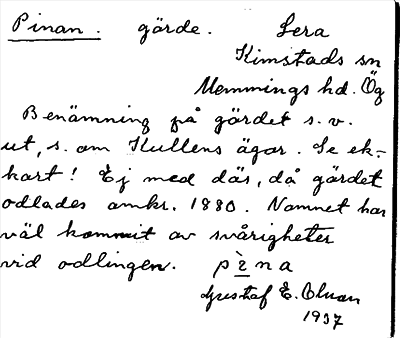 Pinan. gärde. Lera
Kimstads sn
Memmings hd. Ög
Benämning på gärdet s.v.
ut, s. om Kullens ägor. Se ek=
kart! Ej med där, då gärdet
odlades omkr. 1880. Namnet har
väl kommit av svårigheter
vid odlingen. pìna
Gustaf E. Olsson
1937